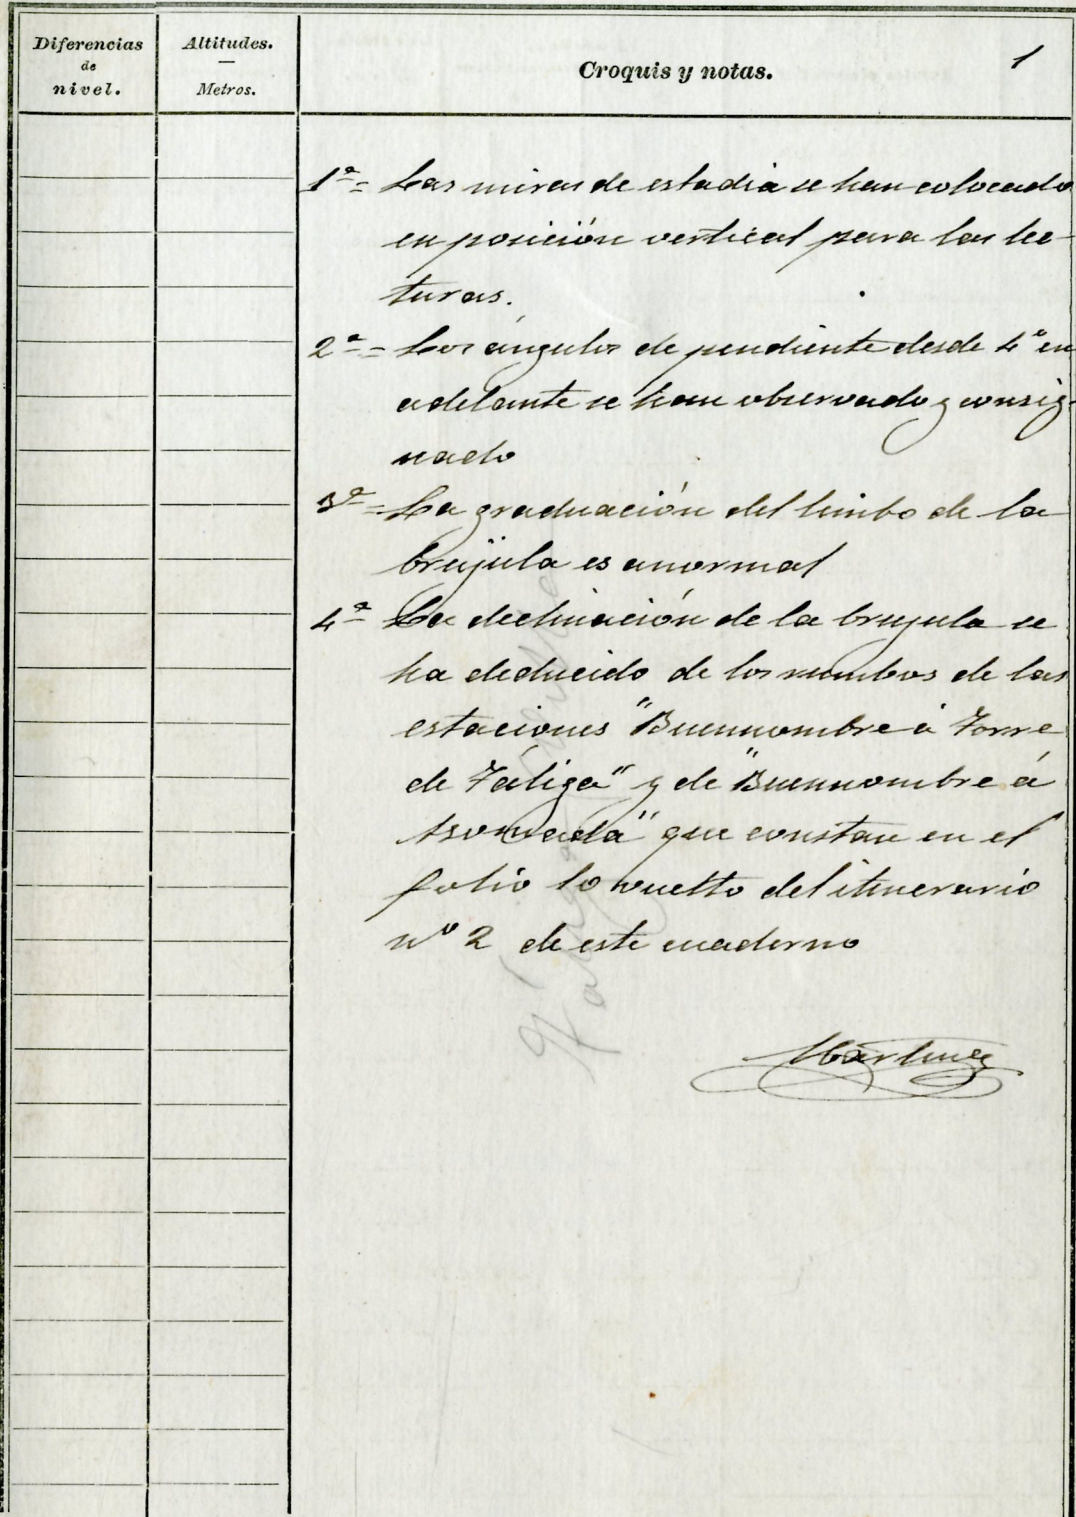 Diferencias
de
nivel.
Altitudes.
Metros.
Croquis y notas.
1
1ª = Las miras de estadia se han colocado
en posición vertical para las lec-
turas.
2ª = Los ángulos de pendiente desde 4º en
adelante se han observado y consig-
nado
3ª = La graduación del limbo de la
brújula es anormal
4ª La declinación de la brujula se
ha deducido de los rumbos de las
estaciones "Buennombre á Torre
de Táliga" y de "Buennombre á
Asomada" que constan en el
folio 10 vuelto del itinerario
nº 2 de este cuaderno
Martinez